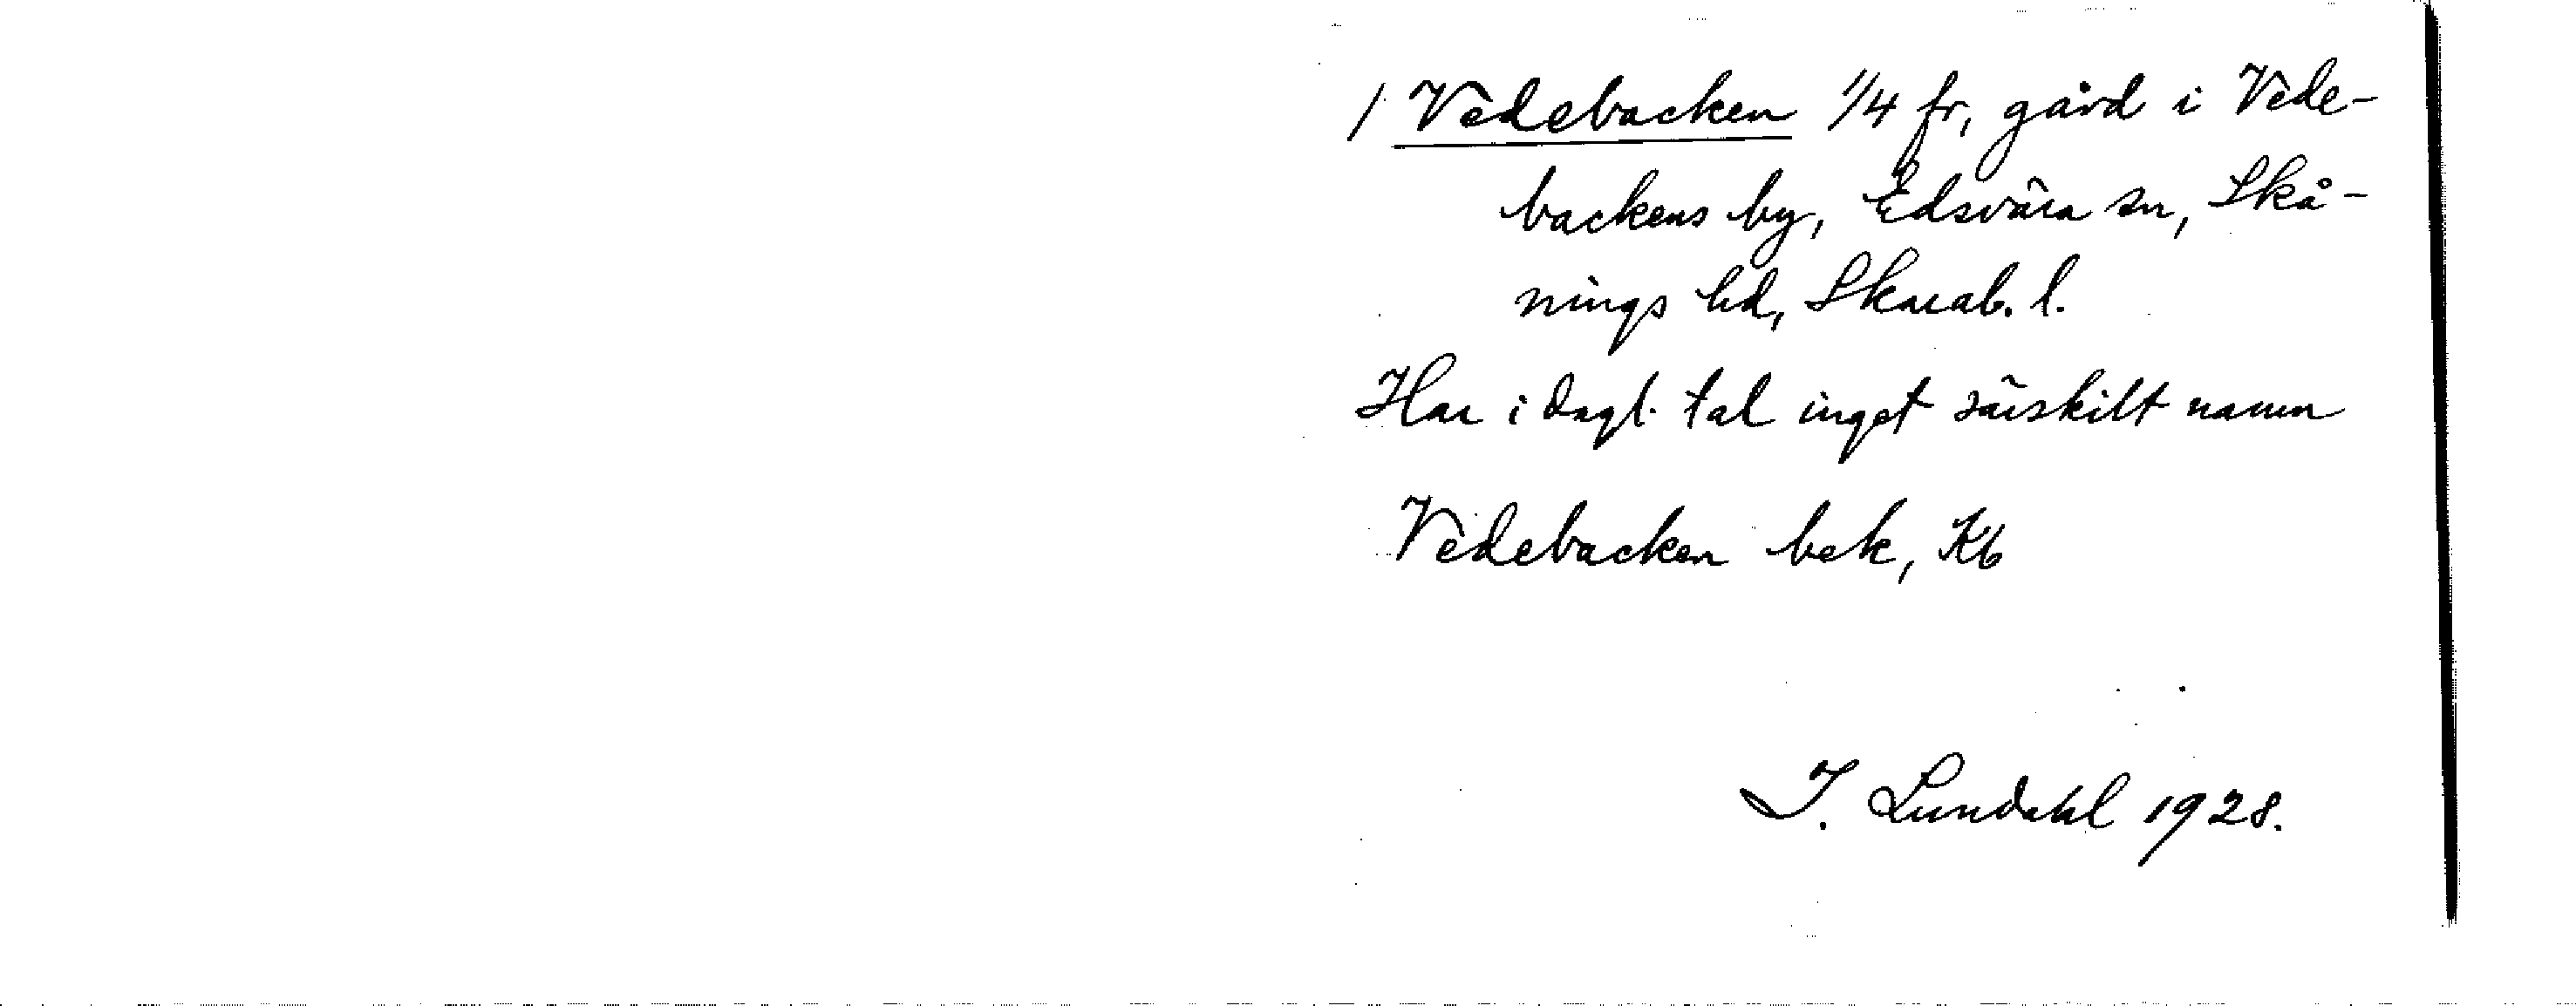 / Vedebacken 1/4 fr, gård i Vede-
backens by, Edsvära sn, Skå-
nings hd, Skarab. l.
Har i dagl. tal inget särskilt namn
Vedebacken bek, Kb
I. Lundahl 1928.